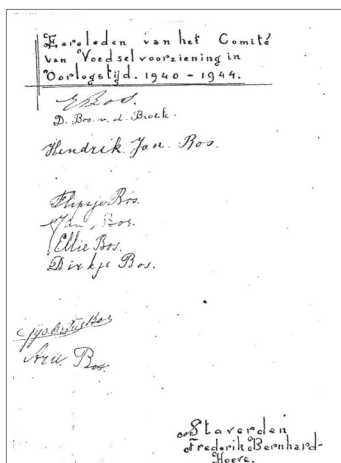 Eereleden van het Comité
van Voedselvoorziening in
Oorlogstijd. 1940 - 1944.
Bos.
D. Bos. v. d. Broek.
Hendrik Jan Bos.
Flipsje Bos.
Bos.
Ellie Bos.
Dirkje Bos.
Gijsbertus Bos
Arie Bos
Staverden
Frederik Bernhard-
Hoeve.